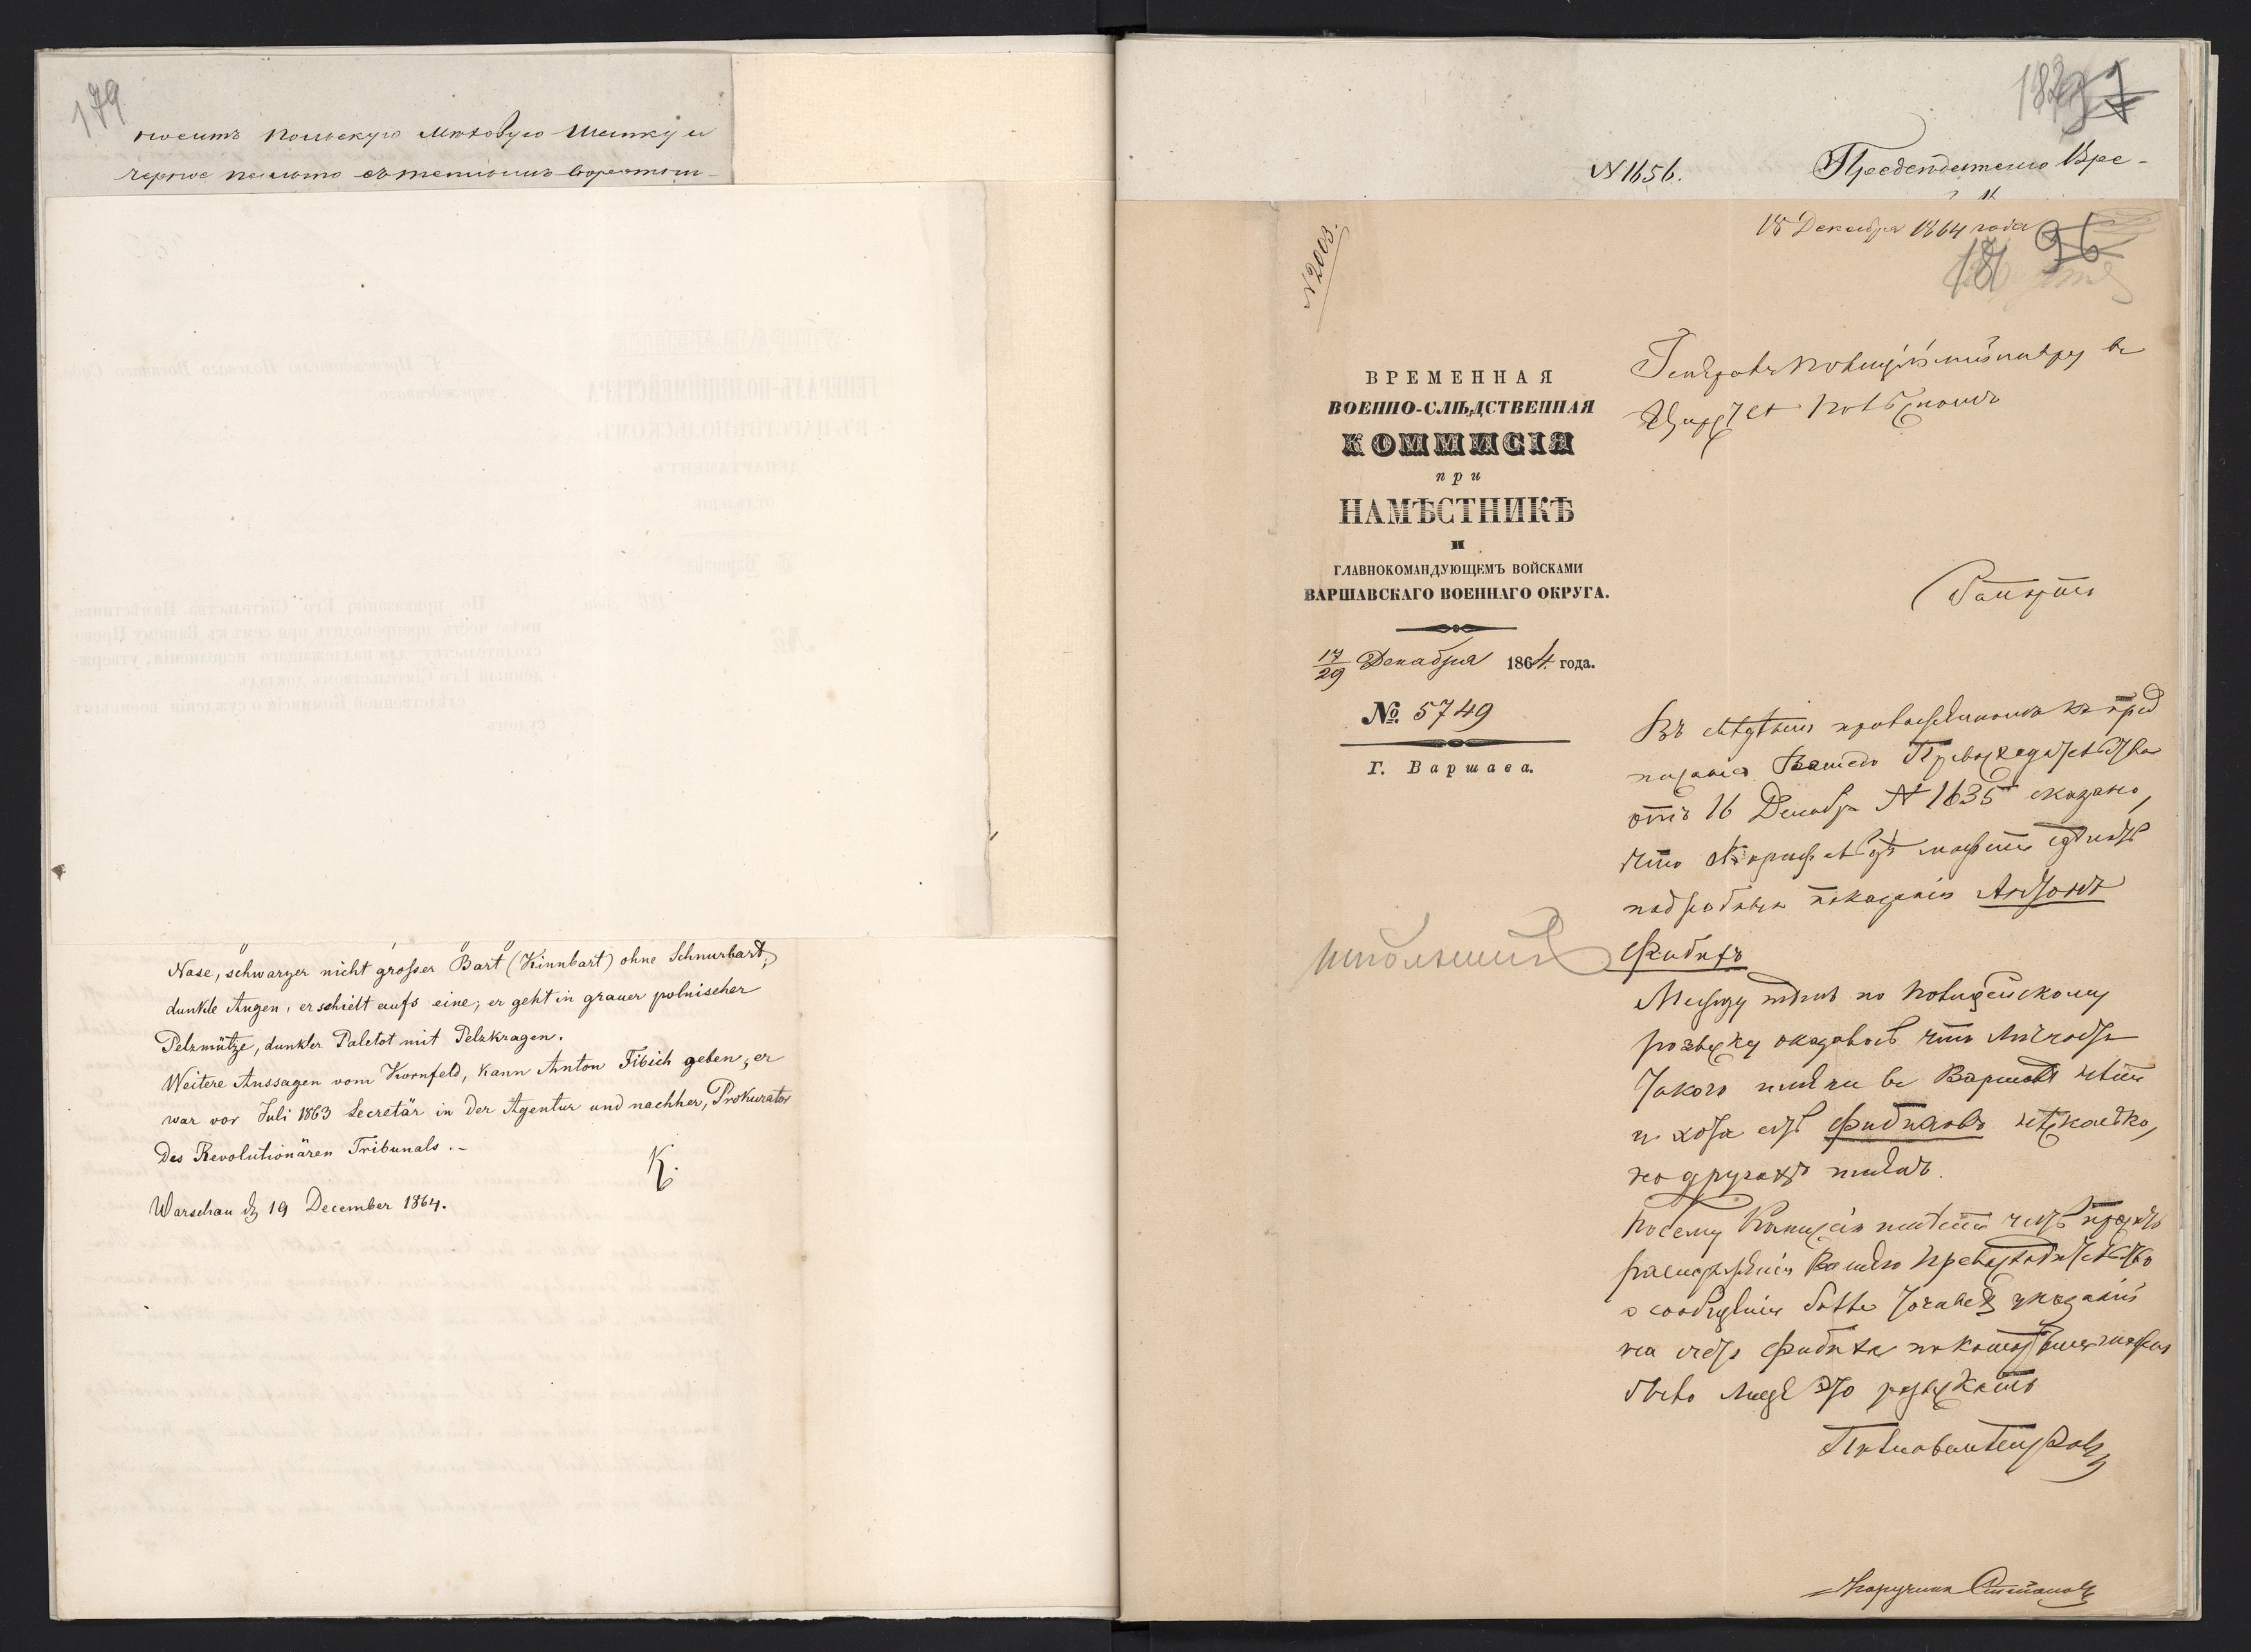 179
носитъ польскую мѣховую шапку и
черное пальто съ мѣховымъ воротни-
Nase, schwarzer nicht grosser Bart (Kinnbart) ohne Schnurbart,
dunkle Augen, er schielt aufs eine; er geht in grauer polnischer
Pelzmütze, dunkler Paletot mit Pelzkragen.
Weitere Aussagen vom Kornfeld, kann Anton Fibich geben, er
war vor Juli 1863 Secretär in der Agentur und nachher, Prokurator
des Revolutionären Tribunals.-
K.
Warschau d 19 December 1864.
N 1656.
Предсѣдателю Вре-
18 Декабря 1864 года
181 96
N 2003.
ВРЕМЕННАЯ
ВОЕННО-СЛѢДСТВЕННАЯ
КОММИСІЯ
при
НАМѢСТНИКѢ
И
ГЛАВНОКОМАНДУЮЩЕМЪ ВОЙСКАМИ
ВАРШАВСКАГО ВОЕННАГО ОКРУГА.
17/29 Декабря 1864 года.
№ 5749
Г. Варшава.
Генералъ Полицiймейстеру въ
Царствѣ Польскомъ
Рапортъ
Въ свѣдѣніи приложенномъ къ пред
писанію Вашего Превосходительства
отъ 16 Декабря N 1635 сказано,
что о Корнфельдѣ можетъ сдѣлать
подробныя показанія Антонъ
Фибихъ
Между тѣмъ по полицейскому
розыску оказалось что
такого имени въ Варшавѣ нѣтъ
и хотя есть Фибиховъ нѣсколько,
но другихъ именъ.
Посему Коммисія имѣетъ честь просить
распоряженія Вашего Превосходительства
о сообщеніи болѣе точныхъ указаній
на счетъ Фибиха по которымъ можно
было лице это розыскать
Поручикъ Степановъ